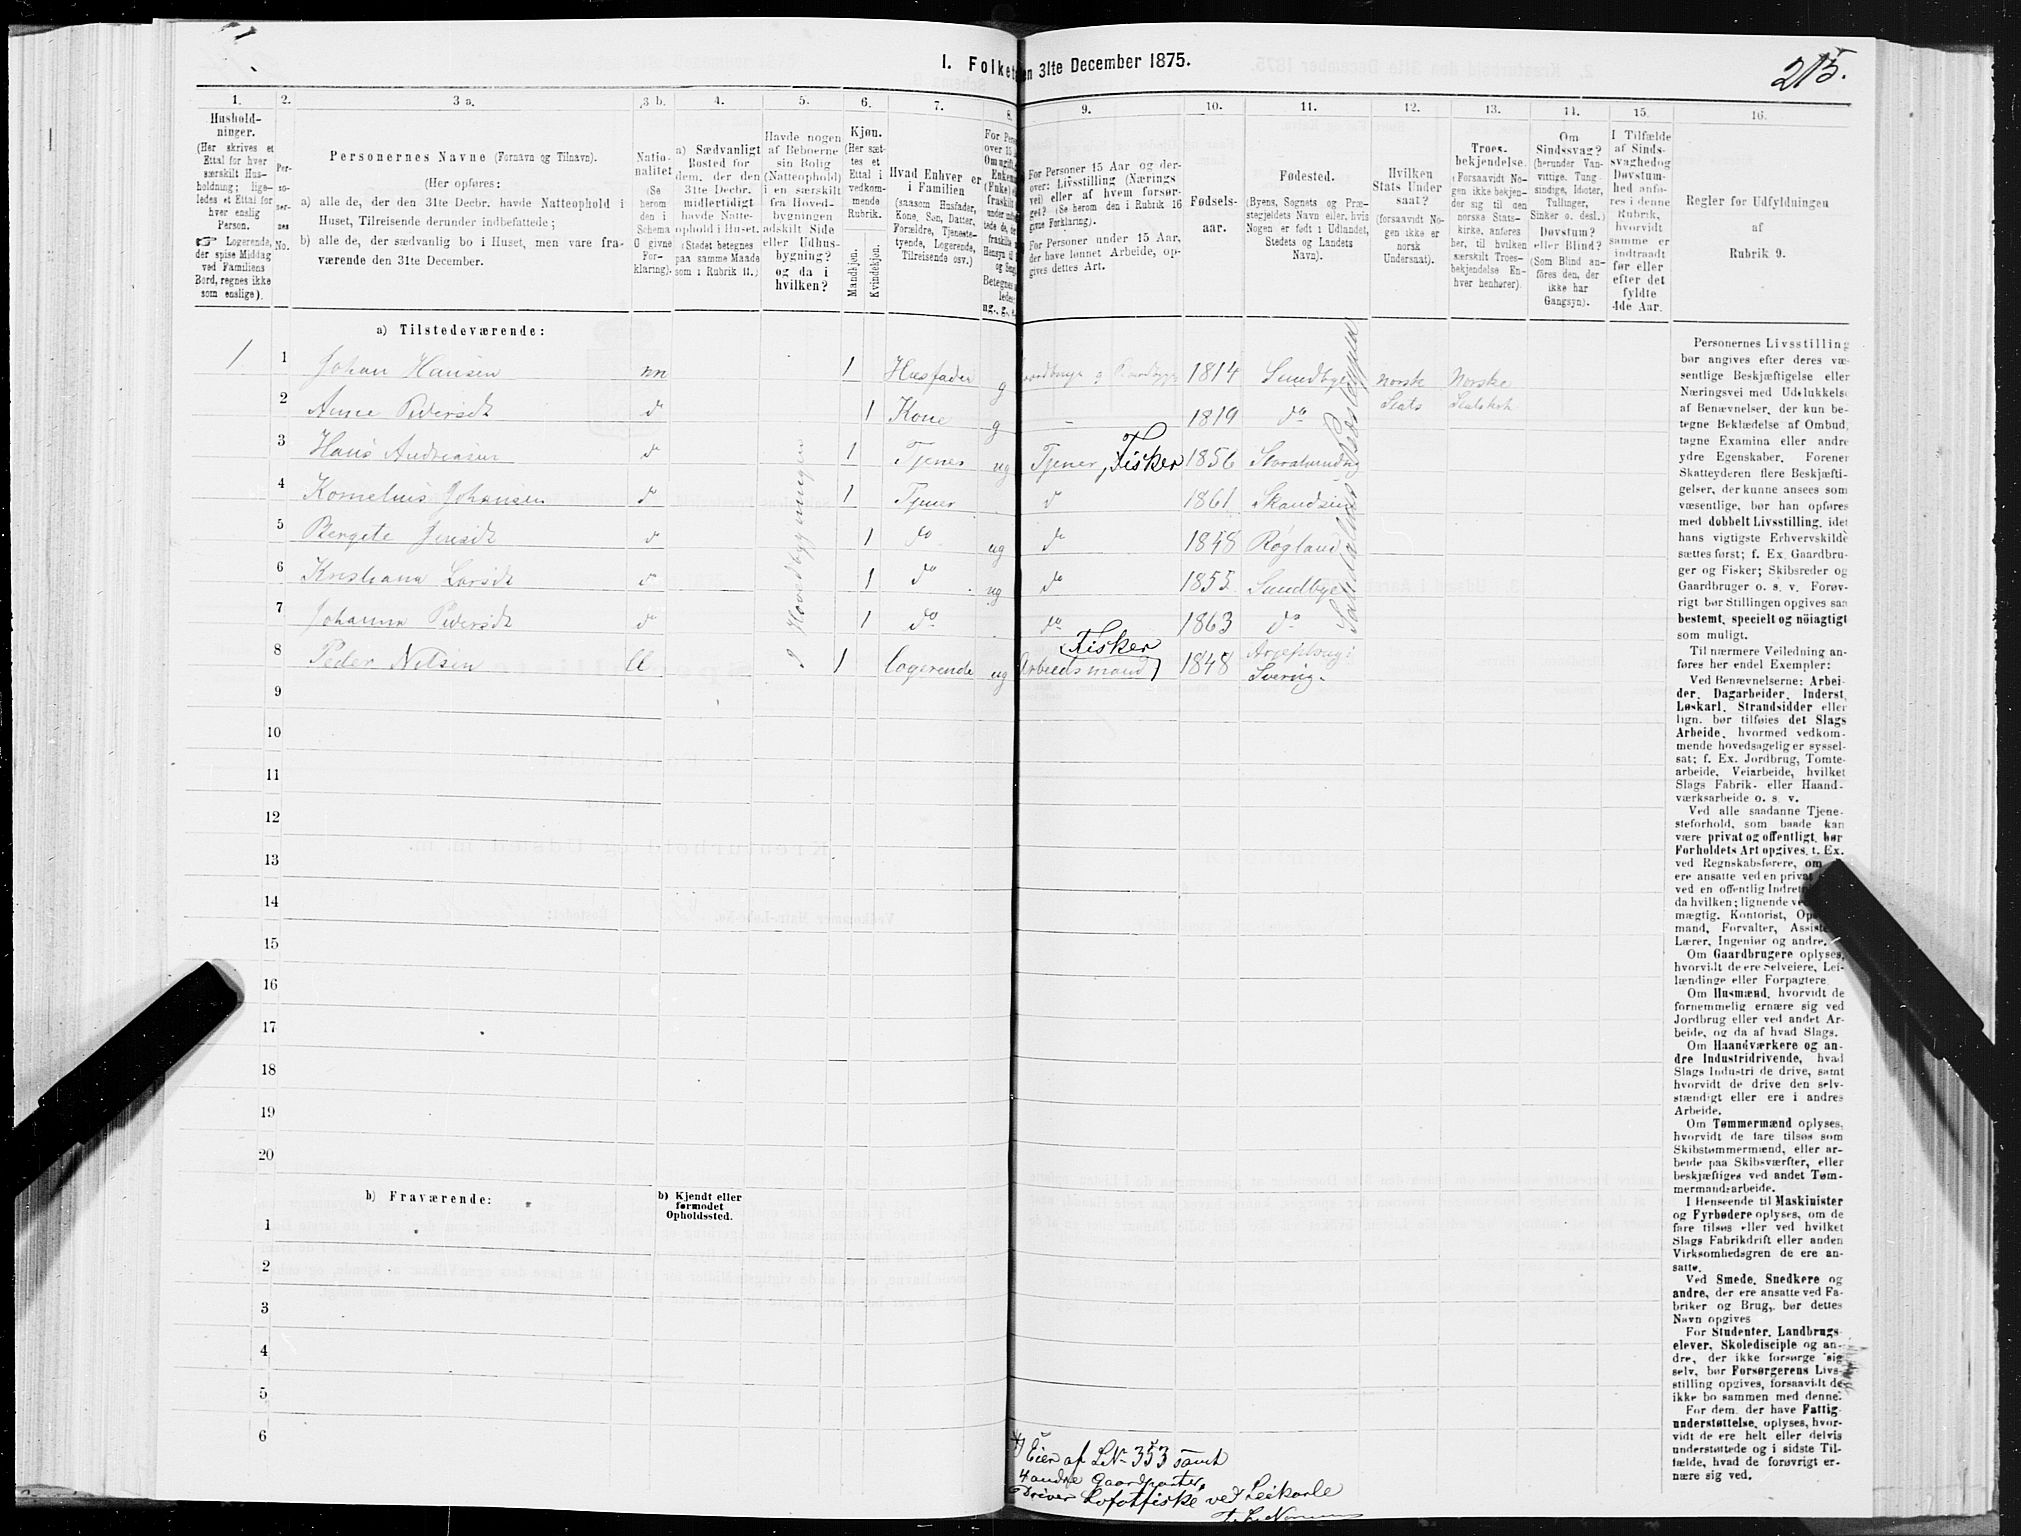 1. Folket en 31te December 1875.
215.
1.
2.
3 a.
3 b.
4.
5.
6.
7.
8.
9.
10.
11.
12.
13.
14.
15.
16.
Hushold-
ninger.
(Her skrives et
Ettal for hver
særskilt Hus-
holdning; lige-
ledes et Ettal for
hver enslig
Person.
☞ Logerende,
der spise Middag
ved Familiens
Bord, regnes ikke
som enslige).
Per-
so-
ner-
nes
No.
Personernes Navne (Fornavn og Tilnavn).
(Her opføres:
a) alle de, der den 31te Decbr. havde Natteophold i
Huset, Tilreisende derunder indbefattede;
b) alle de, der sædvanlig bo i Huset, men vare fra-
værende den 31te December.
Natio-
nalitet
(Se
herom
den i
Schema
O givne
For-
klaring).
a) Sædvanligt
Bosted for
dem, der den
31te Decbr.
midlertidigt
havde Natte-
ophold i Huset.
(Stedet betegnes
paa samme Maade
som i Rubrik 11.)
Havde nogen
af Beboerne
sin Bolig
(Natteophold)
i en særskilt
fra Hoved-
bygningen
adskilt Side
eller Udhus-
bygning?
og da i
hvilken?
Kjøn.
(Her sæt-
tes et
Ettal i
vedkom-
mende
Rubrik.
Mandkjøn.
Kvindekjøn.
Hvad Enhver er
i Familien
(saasom Husfader,
Kone, Søn, Datter,
Forældre, Tjeneste-
tyende, Logerende,
Tilreisende osv.)
For Personer 15 Aar og der-
over: Livsstilling (Nærings
vei) eller af hvem forsør-
get? (Se herom den i Rubrik 16
givne Forklaring).
For Personer under 15 Aar,
der have lønnet Arbeide, op-
gives dettes Art.
Fødsels-
aar.
Fødested.
(Byens, Sognets og Præ-
stegjeldets Navn eller, hvis
Nogen er født i Udlandet,
Stedets og Landets
Navn).
Hvilken
Stats Under
saat?
(forsaavidt No-
gen ikke er
norsk
Undersaat).
Troes-
bekjendelse.
(Forsaavidt No-
gen ikke bekjen-
der sig til den
norske Stats-
kirke, anføres
her, til hvilken
særskilt Troes-
bekjendelse En-
hver henhører).
Om
Sindssvag?
(herunder Van-
vittige, Tung-
sindige, Idioter,
Tullinger,
Sinker o. desl.)
Døvstum?
eller Blind?
(Som Blind an-
føres den, der
ikke har
Gangsyn).
I Tilfælde
af Sinds-
svaghedog
Døvstum-
hed anfø-
res i denne
Rubrik,
hvorvidt
samme er
indtraadt
før eller
efter det
fyldte
4de Aar.
Regler for Udfyldningen
af
Rubrik 9.
a) Tilstedeværende:
1. 1 Johan Hansen nn 1 Husfader g 1814 Sundbye Norsk Norske
Stats
2 Anne Pedersdt d 1 Kone g - 1819 do
3 Hans Andreasen d 1 Tjener ug Tjener, Fisker 1856
4 Kornelius Johansen d 1 Tjener d 1861
5 Bergete Jensdt d 1 do ug d 1848 Røgland
6 Kristiana Larsdt d 1 do ug do 1855 Sundbye
7 Johanna Pedersdt d 1 do do 1863 do
Fisker
8 Peder Nilsen 1 logerende ug Arbeidsmand 1848
Sverrig.
I Hovedbygningen
9
10
11
12
13
14
15
16
17
18
19
20
b) Fraværende:
b) Kjendt eller
formodet
Opholdssted.
1
2
3
4
5
6
Personernes Livsstilling
bør angives efter deres væ-
sentlige Beskjæftigelse eller
Næringsvei med Udelukkelse
af Benævnelser, der kun be-
tegne Beklædelse af Ombud,
tagne Examina eller andre
ydre Egenskaber. Forener
Skatteyderen flere Beskjæfti-
gelser, der kunne ansees som
væsentlige, bør han opføres
med dobbelt Livsstilling, idet
hans vigtigste Erhvervskilde
sættes først; f. Ex. Gaardbru-
ger og Fisker; Skibsreder og
Gaardbruger o. s. v. Forøv-
rigt bør Stillingen opgives saa
bestemt, specielt og nøiagtigt
som muligt.
Til nærmere Veiledning an-
føres her endel Exempler:
Ved Benævnelserne: Arbei-
der, Dagarbeider, Inderst,
Løskarl, Strandsidder eller
lign. bør tilføies det Slags
Arbeide, hvormed vedkom-
mende hovedsagelig er syssel-
sat; f. Ex. Jordbrug, Tomte-
arbeide, Veiarbeide, hvilket
Slags Fabrik- eller Haand-
værksarbeide o. s. v.
Ved alle saadanne Tjene-
steforhold, som baade kan
være privat og offentligt, bør
Forholdets Art opgives, t. Ex.
ved Regnskabsførere, om
ere ansatte ved en privat
ved en offentlig
da hvilken; lignende
mægtig, Kontorist,
mand, Forvalter,
Lærer, Ingeniør og andre.
Om Gaardbrugere oplyses,
hvorvidt de ere Selveiere, Lei-
lændinge eller Forpagtere.
Om Husmænd, hvorvidt de
fornemmelig ernære sig ved
Jordbrug eller ved andet Ar-
beide, og da af hvad Slags.
Om Haandværkere og an-
dre Industridrivende, hvad
Slags Industri de drive, samt
hvorvidt de drive den selv-
stændigt eller ere i andres
Arbeide.
Om Tømmermænd oplyses,
hvorvidt de fare tilsøs som
Skibstømmermænd, eller ar-
beide paa Skibsværfter, eller
beskjæftiges ved andet Tøm-
mermandsarbeide.
I Henseende til Maskinister
og Fyrbødere oplyses, om de
fare tilsøs eller ved hvilket
Slags Fabrikdrift eller anden
Virksomhedsgren de ere an-
satte.
Ved Smede, Snedkere og
andre, der ere ansatte ved Fa-
briker og Brug, bør dettes
Navn opgives
For Studenter, Landbrugs-
elever, Skoledisciple og an-
dre, der ikke forsørge sig
selv, bør Forsørgerens Livs-
stilling opgives, forsaavidt de
ikke bo sammen med denne.
For dem, der have Fattig-
understøttelse, oplyses, hvor-
vidt de ere helt eller delvis
understøttede og i sidste Til-
fælde, hvad de forøvrigt er-
nære sig ved.
Eier af LN 353 samt
4 andre Gaardparter,
Driver Lofotfiske ved Leikarle